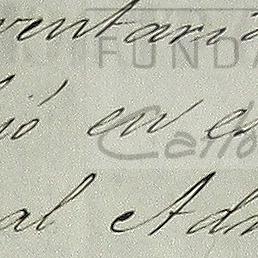 ventari
FUNDA
ió en es
al Adm